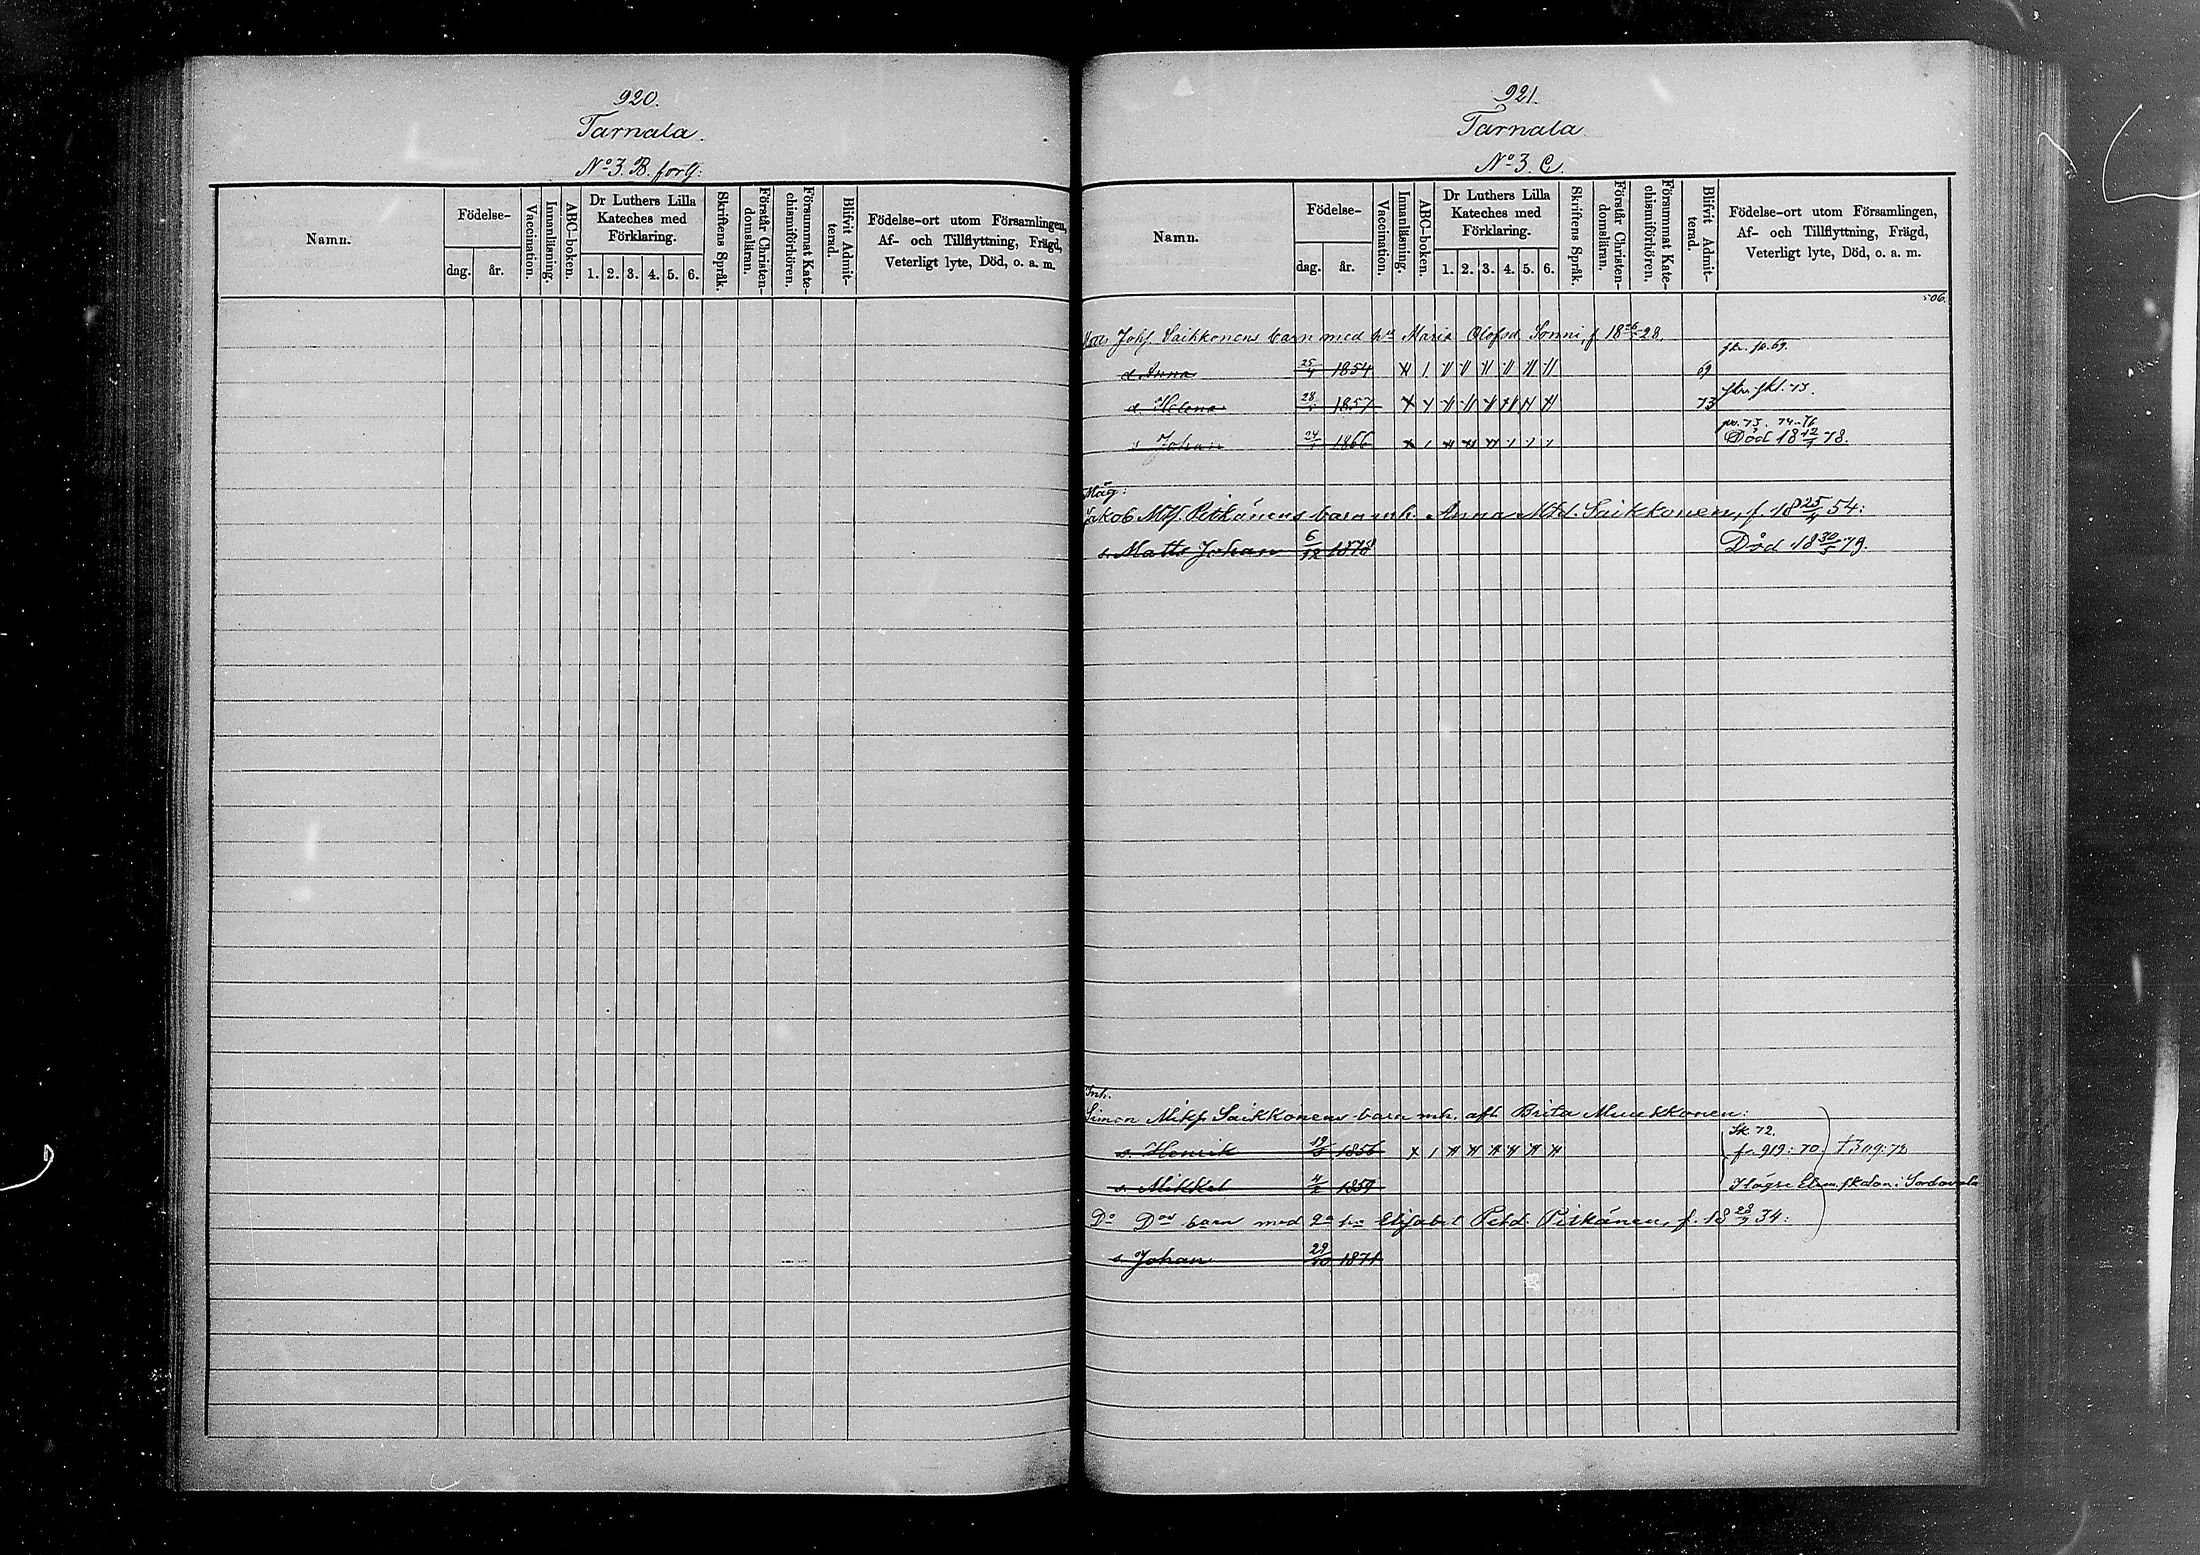 920.
Tarnala.
No 3. B. forts:
Namn.
Födelse-
dag. år.
Vaccination.
Innanläsning.
ABC-boken.
Dr Luthers Lilla Kateches med Förklaring.
1. 2. 3. 4. 5. 6.
Skriftens Språk.
Förstår Christen-domsläran.
Försummat Kate-chismiförhören.
Blifvit Admit-terad.
Födelse-ort utom Församlingen,
Af- och Tillflyttning, Frägd,
Veterligt lyte, Död, o. a. m.
921.
Tarnala
No 3. C.
Namn.
Födelse-
dag. år.
Vaccination.
Innanläsning.
ABC-boken.
Dr Luthers Lilla Kateches med Förklaring.
1. 2. 3. 4. 5. 6.
Skriftens Språk.
Förstår Christen-domsläran.
Försummat Kate-chismiförhören.
Blifvit Admit-terad.
Födelse-ort utom Församlingen,
Af- och Tillflyttning, Frägd,
Veterligt lyte, Död, o. a. m.
Johs. Saikkonens barn med h:u Maria Olofsd. Sonni, f 18 26/ 28.
d. Anna 25/4 1854 69
d. Helena 28/ 1857 73
74-76
s. Johan 24/ 1866 Död 18 12/7 78.
Måg:
Jakob Mts. Pitkänens barn mh. Anna Mtd. Saikkonen, f 18 25/4 54:
s. Matts Johan 6/12 1878 Död 18 30/5 79.
Inh.
Simon Mikls. Saikkonens barn mh. afl. Brita Muukkonen:
Sk. 72.
s. Henrik 19/5 1856 fr. 919: 70
s. Mikkel 4/2 1859 i Högre Elem. skolan i Sordavala
Do Dos barn med 2a h:u Elisabet Petd. Pitkänen, f. 18 23/2 34:
s. Johan 29/10 1871